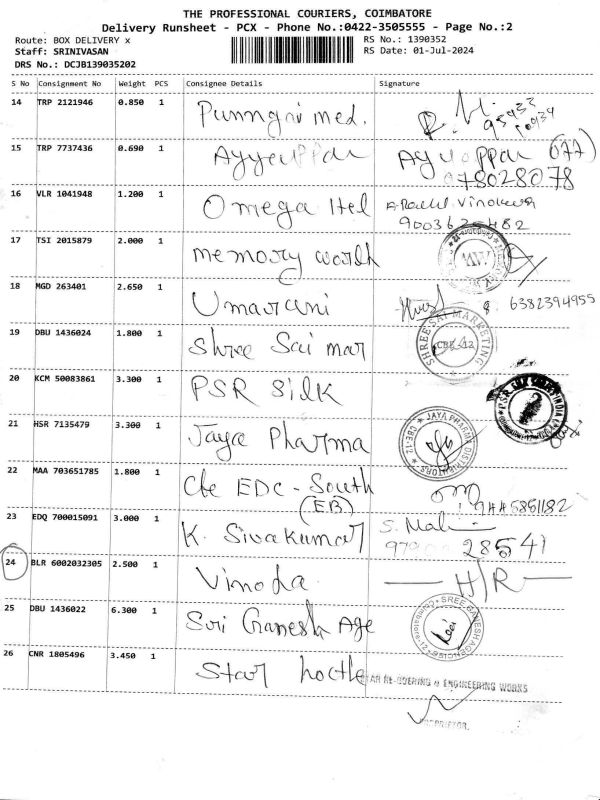 THE PROFESSIONAL COURIERS, COIMBATORE
Delivery Runsheet - PCX - Phone No.:0422-3505555 - Page No.:2
Route: BOX DELIVERY x
RS No.: 1390352
Staff: SRINIVASAN
RS Date: 01-Jul-2024
DRS No.: DCJB139035202
S No Consignment No Weight PCS Consignee Details Signature
14 TRP 2121946 0.850 1 Punngai med.
15 TRP 7737436 0.690 1 Ayyappan
16 VLR 1041948 1.200 1 Omega Htel
9003625482
17 TSI 2015879 2.000 1 memory world
18 MGD 263401 2.650 1 Umarani 6382394955
19 DBU 1436024 1.800 1 Shree Sai mar
SHREE SAI MARKETING CBE-12
20 KCM 50083861 3.300 1 PSR Silk
21 HSR 7135479 3.300 1 Jaya Pharma
JAYA PHARMA DISTRIBUTORS CBE-12
22 MAA 703651785 1.800 1 Cbe EDC - South
(EB) 9445851182
23 EDQ 700015091 3.000 1 K. Sivakumar S. Mali
28541
24 BLR 6002032305 2.500 1 Vinoda H/R
25 DBU 1436022 6.300 1 Sri Ganesh Age
SREE GANESH AGENCIES
26 CNR 1805496 3.450 1 Star hoctle
ENGINEERING WORKS
PROPRIETOR.